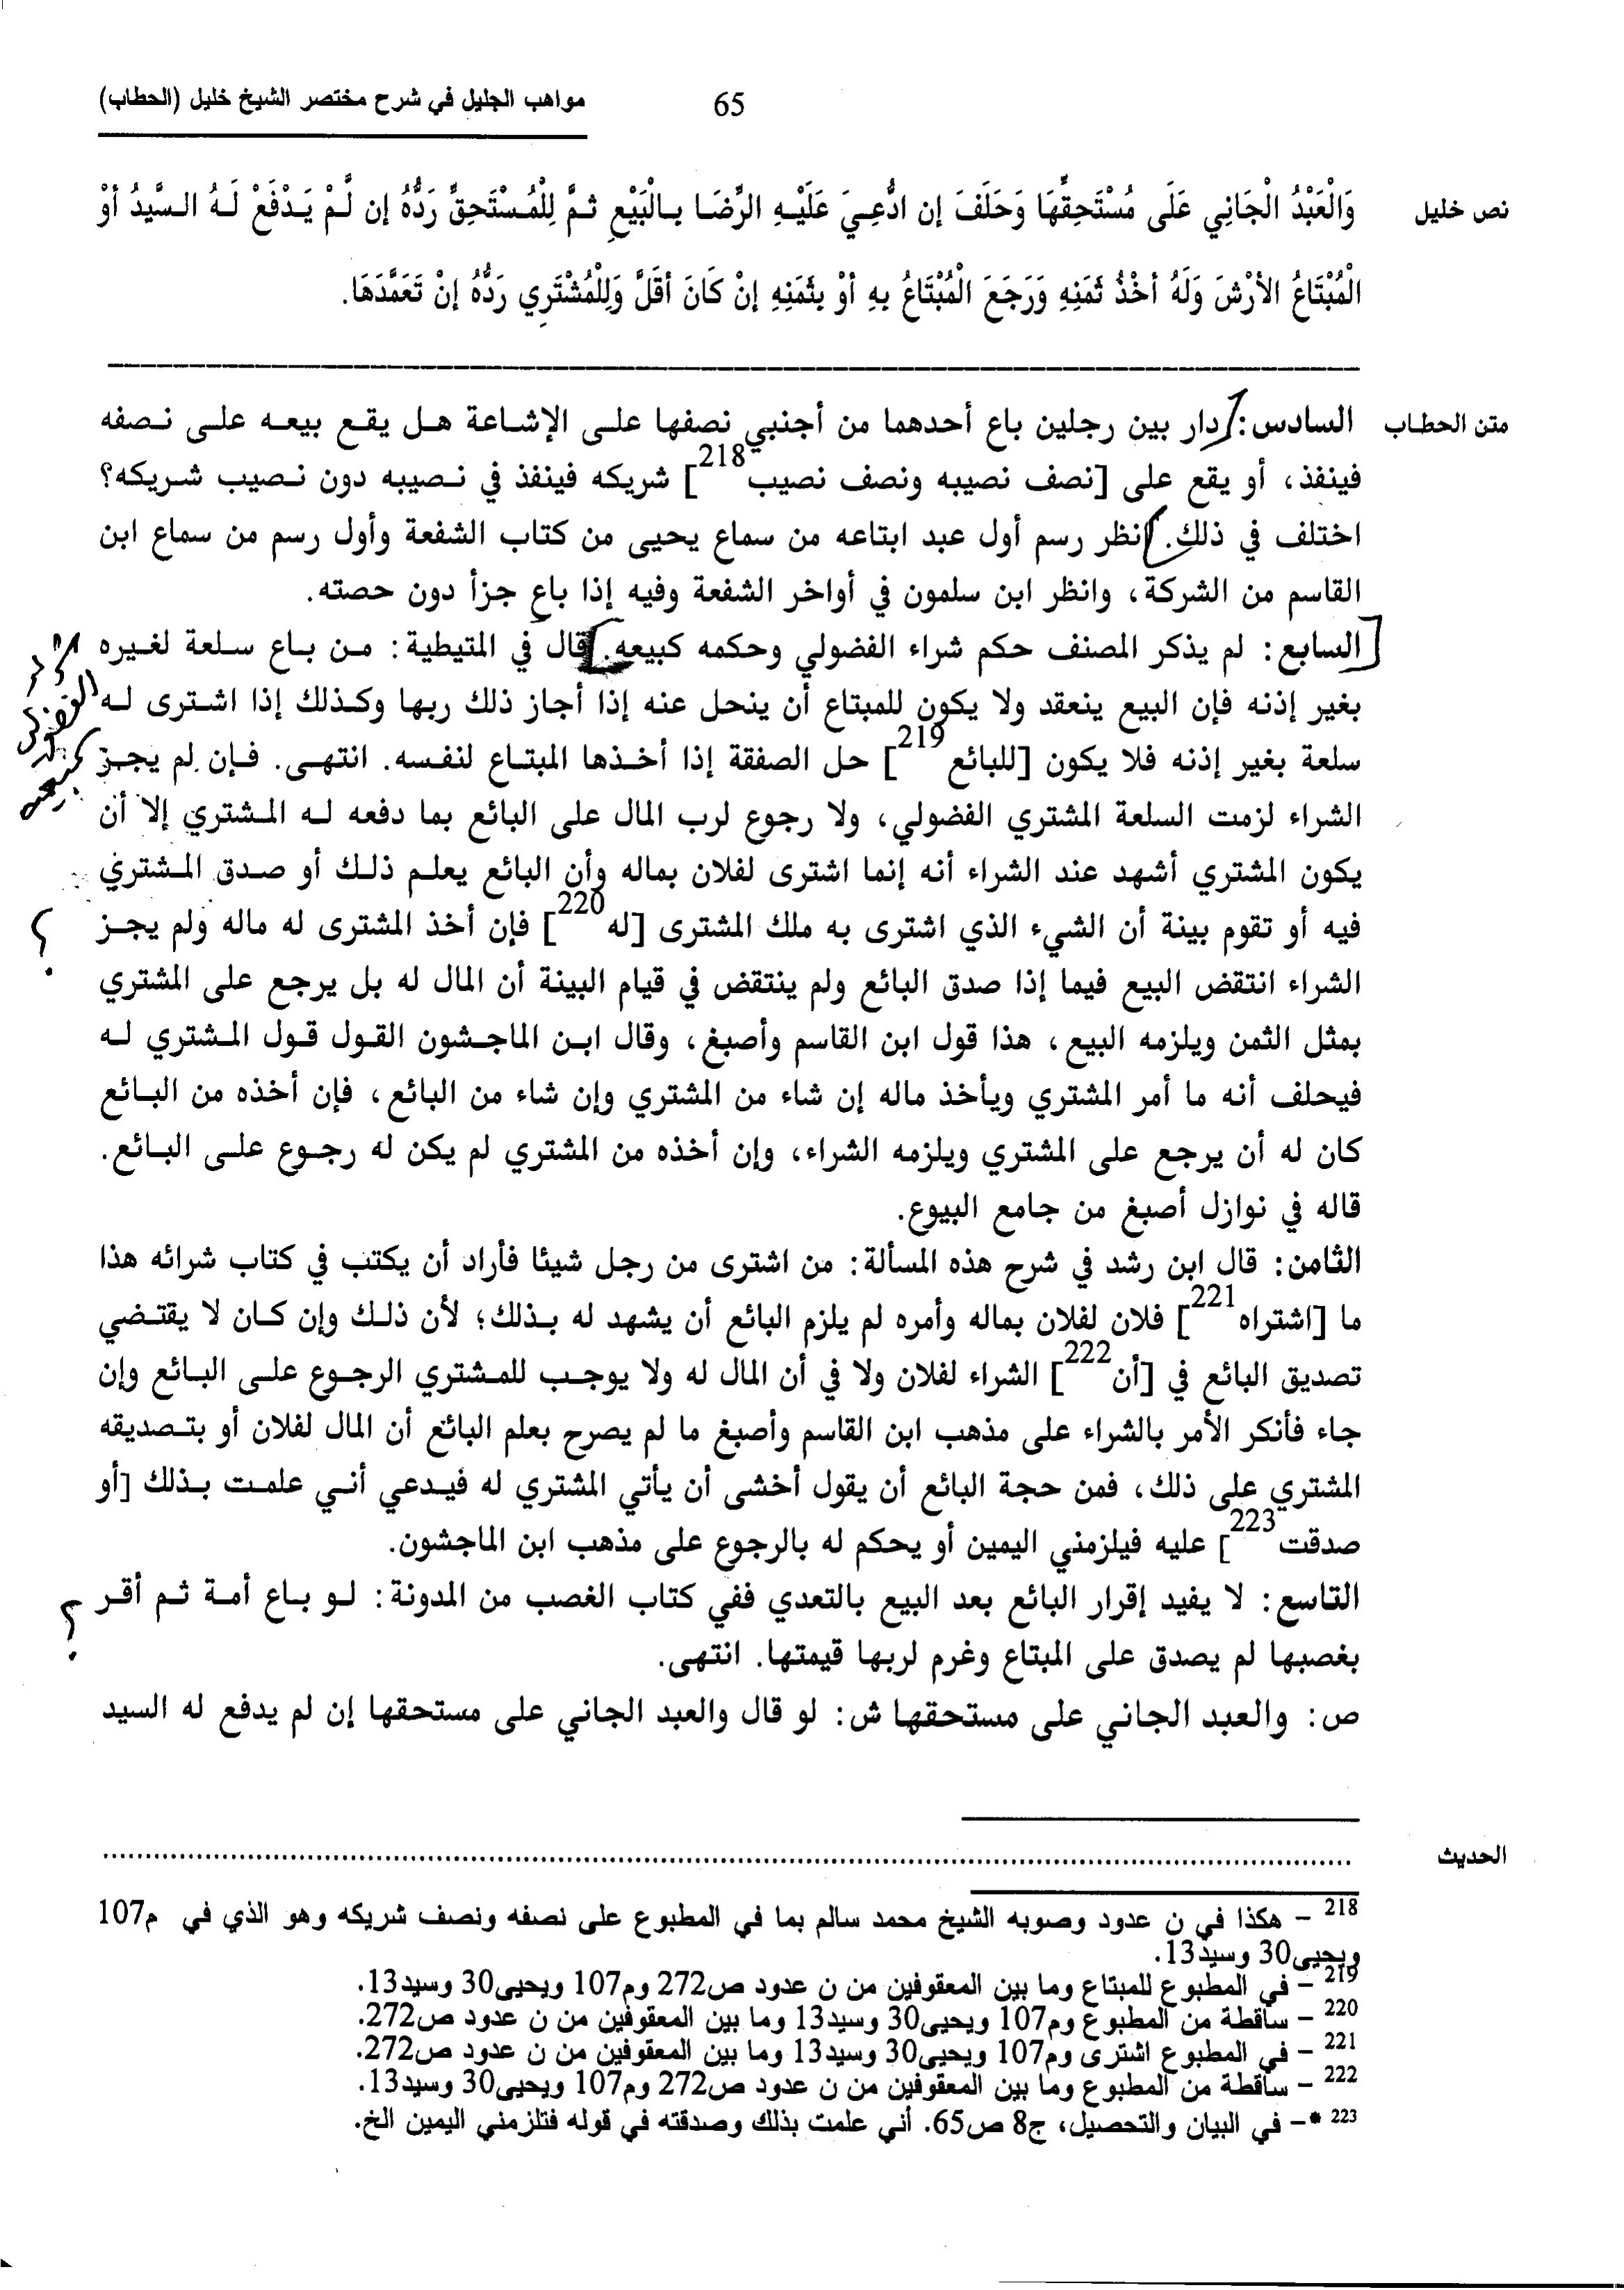 مواهب الجليل في شرح مختصر الشيخ خليل (الحطاب)
65
نص خليل
وَالْعَبْدُ الْجَانِي عَلَى مُسْتَحِقِّهَا وَحَلَفَ إن ادُّعِيَ عَلَيْهِ الرِّضَا بِالْبَيْعِ ثمَّ لِلْمُسْتَحِقِّ رَدُّهُ إن لَّمْ يَدْفَعْ لَهُ السَّيِّدُ أوْ
الْمُبْتَاعُ الأرْشَ وَلَهُ أخْذُ ثَمَنِهِ وَرَجَعَ الْمُبْتَاعُ بهِ أوْ بثَمَنِهِ إنْ كَانَ أقَلَّ وَلِلْمُشْتَرِي رَدُّهُ إنْ تَعَمَّدَهَا.
متن الحطاب
السادس: دار بين رجلين باع أحدهما من أجنبي نصفها على الإشاعة هل يقع بيعه على نصفه
فينفذ، أو يقع على [نصف نصيبه ونصف نصيب218] شريكه فينفذ في نصيبه دون نصيب شريكه؟
اختلف في ذلك. انظر رسم أول عبد ابتاعه من سماع يحيى من كتاب الشفعة وأول رسم من سماع ابن
القاسم من الشركة، وانظر ابن سلمون في أواخر الشفعة وفيه إذا باع جزأ دون حصته.
السابع: لم يذكر المصنف حكم شراء الفضولي وحكمه كبيعه. قال في المتيطية: من باع سلعة لغيره
بغير إذنه فإن البيع ينعقد ولا يكون للمبتاع أن ينحل عنه إذا أجاز ذلك ربها وكذلك إذا اشترى له
سلعة بغير إذنه فلا يكون [للبائع219] حل الصفقة إذا أخذها المبتاع لنفسه. انتهى. فإن لم يجز
الشراء لزمت السلعة المشتري الفضولي، ولا رجوع لرب المال على البائع بما دفعه له المشتري إلا أن
يكون المشتري أشهد عند الشراء أنه إنما اشترى لفلان بماله وأن البائع يعلم ذلك أو صدق المشتري
فيه أو تقوم بينة أن الشيء الذي اشترى به ملك المشترى [له220] فإن أخذ المشترى له ماله ولم يجز
الشراء انتقض البيع فيما إذا صدق البائع ولم ينتقض في قيام البينة أن المال له بل يرجع على المشتري
بمثل الثمن ويلزمه البيع، هذا قول ابن القاسم وأصبغ، وقال ابن الماجشون القول قول المشتري له
فيحلف أنه ما أمر المشتري ويأخذ ماله إن شاء من المشتري وإن شاء من البائع، فإن أخذه من البائع
كان له أن يرجع على المشتري ويلزمه الشراء، وإن أخذه من المشتري لم يكن له رجوع على البائع.
قاله في نوازل أصبغ من جامع البيوع.
الثامن: قال ابن رشد في شرح هذه المسألة: من اشترى من رجل شيئا فأراد أن يكتب في كتاب شرائه هذا
ما [اشتراه221] فلان لفلان بماله وأمره لم يلزم البائع أن يشهد له بذلك؛ لأن ذلك وإن كان لا يقتضي
تصديق البائع في [أن222] الشراء لفلان ولا في أن المال له ولا يوجب للمشتري الرجوع على البائع وإن
جاء فأنكر الأمر بالشراء على مذهب ابن القاسم وأصبغ ما لم يصرح بعلم البائع أن المال لفلان أو بتصديقه
المشتري على ذلك، فمن حجة البائع أن يقول أخشى أن يأتي المشتري له فيدعي أني علمت بذلك [أو
صدقت223] عليه فيلزمني اليمين أو يحكم له بالرجوع على مذهب ابن الماجشون.
التاسع: لا يفيد إقرار البائع بعد البيع بالتعدي ففي كتاب الغصب من المدونة: لو باع أمة ثم أقر
بغصبها لم يصدق على المبتاع وغرم لربها قيمتها. انتهى.
ص: والعبد الجاني على مستحقها ش: لو قال والعبد الجاني على مستحقها إن لم يدفع له السيد
شراء
الفضولي
كبيعه
؟
؟
الحديث
218 – هكذا في ن عدود وصوبه الشيخ محمد سالم بما في المطبوع على نصفه ونصف شريكه وهو الذي في م107
ويحيى30 وسيد13.
219 – في المطبوع للمبتاع وما بين المعقوفين من ن عدود ص272 وم107 ويحيى30 وسيد13.
220 – ساقطة من المطبوع وم107 ويحيى30 وسيد13 وما بين المعقوفين من ن عدود ص272.
221 – في المطبوع اشترى وم107 ويحيى30 وسيد13 وما بين المعقوفين من ن عدود ص272.
222 – ساقطة من المطبوع وما بين المعقوفين من ن عدود ص272 وم107 ويحيى30 وسيد13.
223 *– في البيان والتحصيل، ج8 ص65. أني علمت بذلك وصدقته في قوله فتلزمني اليمين الخ.